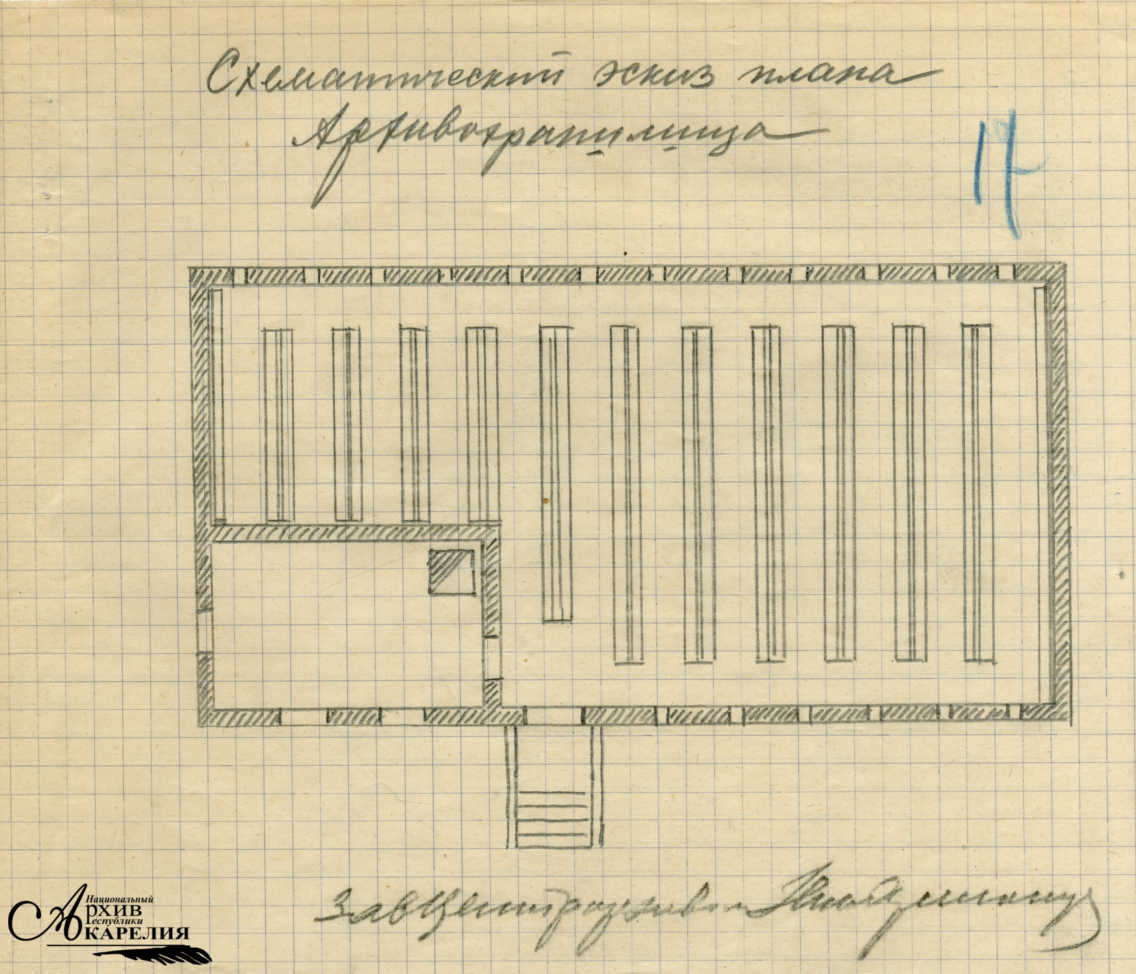 Схематический эскиз плана
Архивохранилища
17
ЗавЦентрархивом
Национальный
Архив
Республики
Карелия